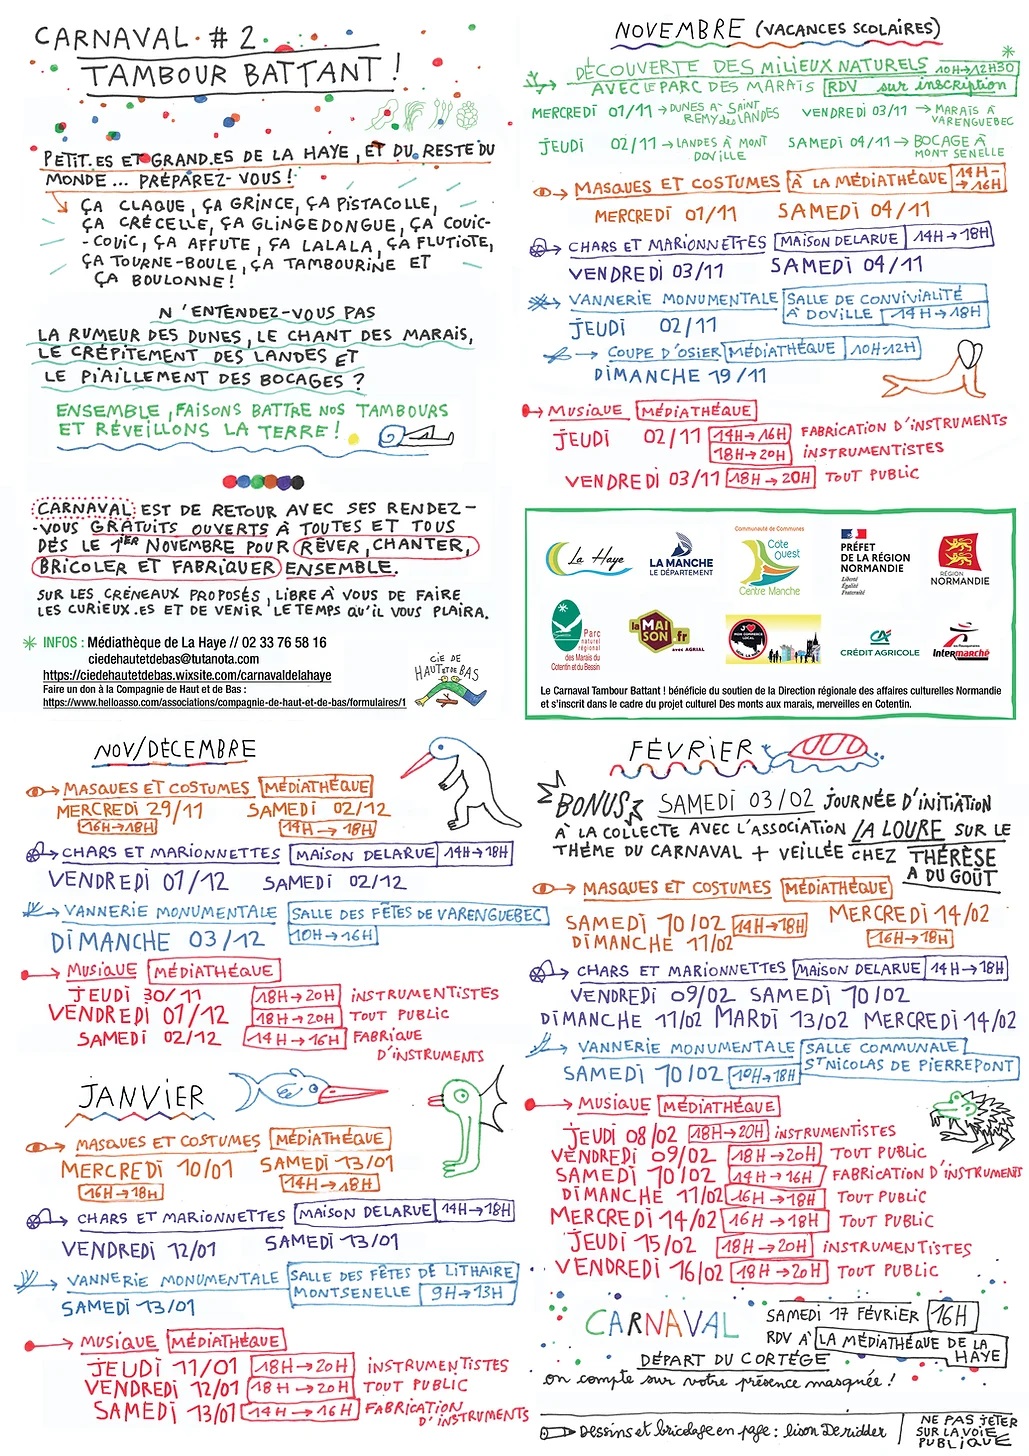 CARNAVAL # 2
TAMBOUR BATTANT !
PETIT.ES ET GRAND.ES DE LA HAYE, ET DU RESTE DU
MONDE... PRÉPAREZ-VOUS !
ÇA CLAQUE, ÇA GRINCE, ÇA PISTACOLLE,
ÇA CRÉCELLE, ÇA GLINGEDONGUE, ÇA COUIC-
-COUIC, ÇA AFFUTE, ÇA LALALA, ÇA FLUTIOTE,
ÇA TOURNE-BOULE, ÇA TAMBOURINE ET
ÇA BOULONNE !
N'ENTENDEZ-VOUS PAS
LA RUMEUR DES DUNES, LE CHANT DES MARAIS,
LE CRÉPITEMENT DES LANDES ET
LE PIAILLEMENT DES BOCAGES ?
ENSEMBLE, FAISONS BATTRE NOS TAMBOURS
ET RÉVEILLONS LA TERRE !
CARNAVAL EST DE RETOUR AVEC SES RENDEZ-
-VOUS GRATUITS OUVERTS À TOUTES ET TOUS
DÈS LE 1ER NOVEMBRE POUR RÊVER, CHANTER,
BRICOLER ET FABRIQUER ENSEMBLE.
SUR LES CRÉNEAUX PROPOSÉS, LIBRE À VOUS DE FAIRE
LES CURIEUX.ES ET DE VENIR LE TEMPS QU'IL VOUS PLAIRA.
INFOS : Médiathèque de La Haye // 02 33 76 58 16
ciedehautetdebas@tutanota.com
https://ciedehautetdebas.wixsite.com/carnavaldelahaye
Faire un don à la Compagnie de Haut et de Bas :
https://www.helloasso.com/associations/compagnie-de-haut-et-de-bas/formulaires/1
CIE DE
HAUT ET DE BAS
NOVEMBRE (VACANCES SCOLAIRES)
DÉCOUVERTE DES MILIEUX NATURELS 10H→12H30
AVEC LE PARC DES MARAIS RDV sur inscription
MERCREDI 01/11 → DUNES A SAINT REMY des LANDES
VENDREDI 03/11 → MARAIS À VARENGUEBEC
JEUDI 02/11 → LANDES À MONT DOVILLE
SAMEDI 04/11 → BOCAGE À MONT SENELLE
MASQUES ET COSTUMES À LA MÉDIATHÉQUE 14H-→16H
MERCREDI 01/11 SAMEDI 04/11
CHARS ET MARIONNETTES MAISON DELARUE 14H→18H
VENDREDI 03/11 SAMEDI 04/11
VANNERIE MONUMENTALE SALLE DE CONVIVIALITÉ
À DOVILLE 14H→18H
JEUDI 02/11
COUPE D'OSIER MÉDIATHÉQUE 10H-12H
DIMANCHE 19/11
MUSIQUE MÉDIATHÉQUE
JEUDI 02/11 14H→16H FABRICATION D'INSTRUMENTS
18H→20H INSTRUMENTISTES
VENDREDI 03/11 18H→20H TOUT PUBLIC
La Haye
LA MANCHE
LE DÉPARTEMENT
Communauté de Communes
Côte Ouest
Centre Manche
PRÉFET
DE LA RÉGION
NORMANDIE
Liberté
Égalité
Fraternité
RÉGION
NORMANDIE
Parc
naturel
régional
des Marais du
Cotentin et du Bessin
la MAISON.fr
avec AGRIAL
J'
MON COMMERCE
LOCAL
CRÉDIT AGRICOLE
Intermarché
Le Carnaval Tambour Battant ! bénéficie du soutien de la Direction régionale des affaires culturelles Normandie
et s'inscrit dans le cadre du projet culturel Des monts aux marais, merveilles en Cotentin.
NOV/DÉCEMBRE
MASQUES ET COSTUMES MÉDIATHÉQUE
MERCREDI 29/11 SAMEDI 02/12
16H→18H 14H→18H
CHARS ET MARIONNETTES MAISON DELARUE 14H→18H
VENDREDI 01/12 SAMEDI 02/12
VANNERIE MONUMENTALE SALLE DES FÊTES DE VARENGUEBEC
DIMANCHE 03/12 10H→16H
MUSIQUE MÉDIATHÉQUE
JEUDI 30/11 18H→20H INSTRUMENTISTES
VENDREDI 01/12 18H→20H TOUT PUBLIC
SAMEDI 02/12 14H→16H FABRIQUE
D'INSTRUMENTS
JANVIER
MASQUES ET COSTUMES MÉDIATHÉQUE
MERCREDI 10/01 SAMEDI 13/01
16H→18H 14H→18H
CHARS ET MARIONNETTES MAISON DELARUE 14H→18H
VENDREDI 12/01 SAMEDI 13/01
VANNERIE MONUMENTALE SALLE DES FÊTES DE LITHAIRE
MONTSENELLE 9H→13H
SAMEDI 13/01
MUSIQUE MÉDIATHÉQUE
JEUDI 11/01 18H→20H INSTRUMENTISTES
VENDREDI 12/01 18H→20H TOUT PUBLIC
SAMEDI 13/01 14H→16H FABRICATION
D'INSTRUMENTS
FÉVRIER
BONUS SAMEDI 03/02 JOURNÉE D'INITIATION
À LA COLLECTE AVEC L'ASSOCIATION LA LOURE SUR LE
THÈME DU CARNAVAL + VEILLÉE CHEZ THÉRÈSE
A DU GOÛT
MASQUES ET COSTUMES MÉDIATHÉQUE
SAMEDI 10/02 14H→18H MERCREDI 14/02
DIMANCHE 11/02 16H→18H
CHARS ET MARIONNETTES MAISON DELARUE 14H→18H
VENDREDI 09/02 SAMEDI 10/02
DIMANCHE 11/02 MARDI 13/02 MERCREDI 14/02
VANNERIE MONUMENTALE SALLE COMMUNALE
ST NICOLAS DE PIERREPONT
SAMEDI 10/02 10H→18H
MUSIQUE MÉDIATHÉQUE
JEUDI 08/02 18H→20H INSTRUMENTISTES
VENDREDI 09/02 18H→20H TOUT PUBLIC
SAMEDI 10/02 14H→16H FABRICATION D'INSTRUMENTS
DIMANCHE 11/02 16H→18H TOUT PUBLIC
MERCREDI 14/02 16H→18H TOUT PUBLIC
JEUDI 15/02 18H→20H INSTRUMENTISTES
VENDREDI 16/02 18H→20H TOUT PUBLIC
CARNAVAL SAMEDI 17 FÉVRIER 16H
RDV À LA MÉDIATHÉQUE DE LA HAYE
DÉPART DU CORTÉGE
on compte sur votre présence masquée !
Dessins et bricolage en page : lison De ridder
NE PAS JETER
SUR LA VOIE
PUBLIQUE